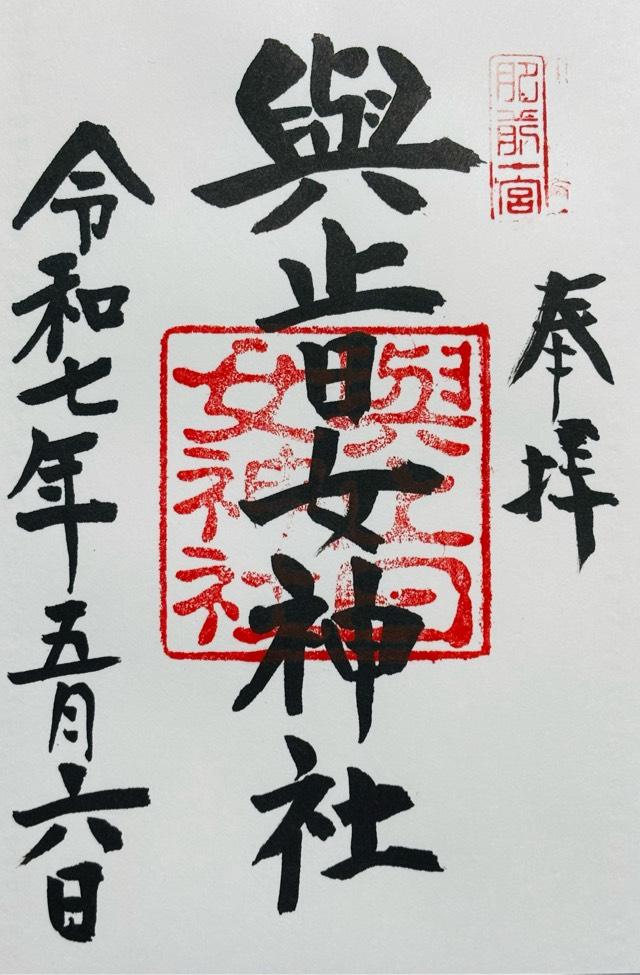 肥前一宮
奉拝
與止日女神社
與止日
女神社
令和七年五月六日